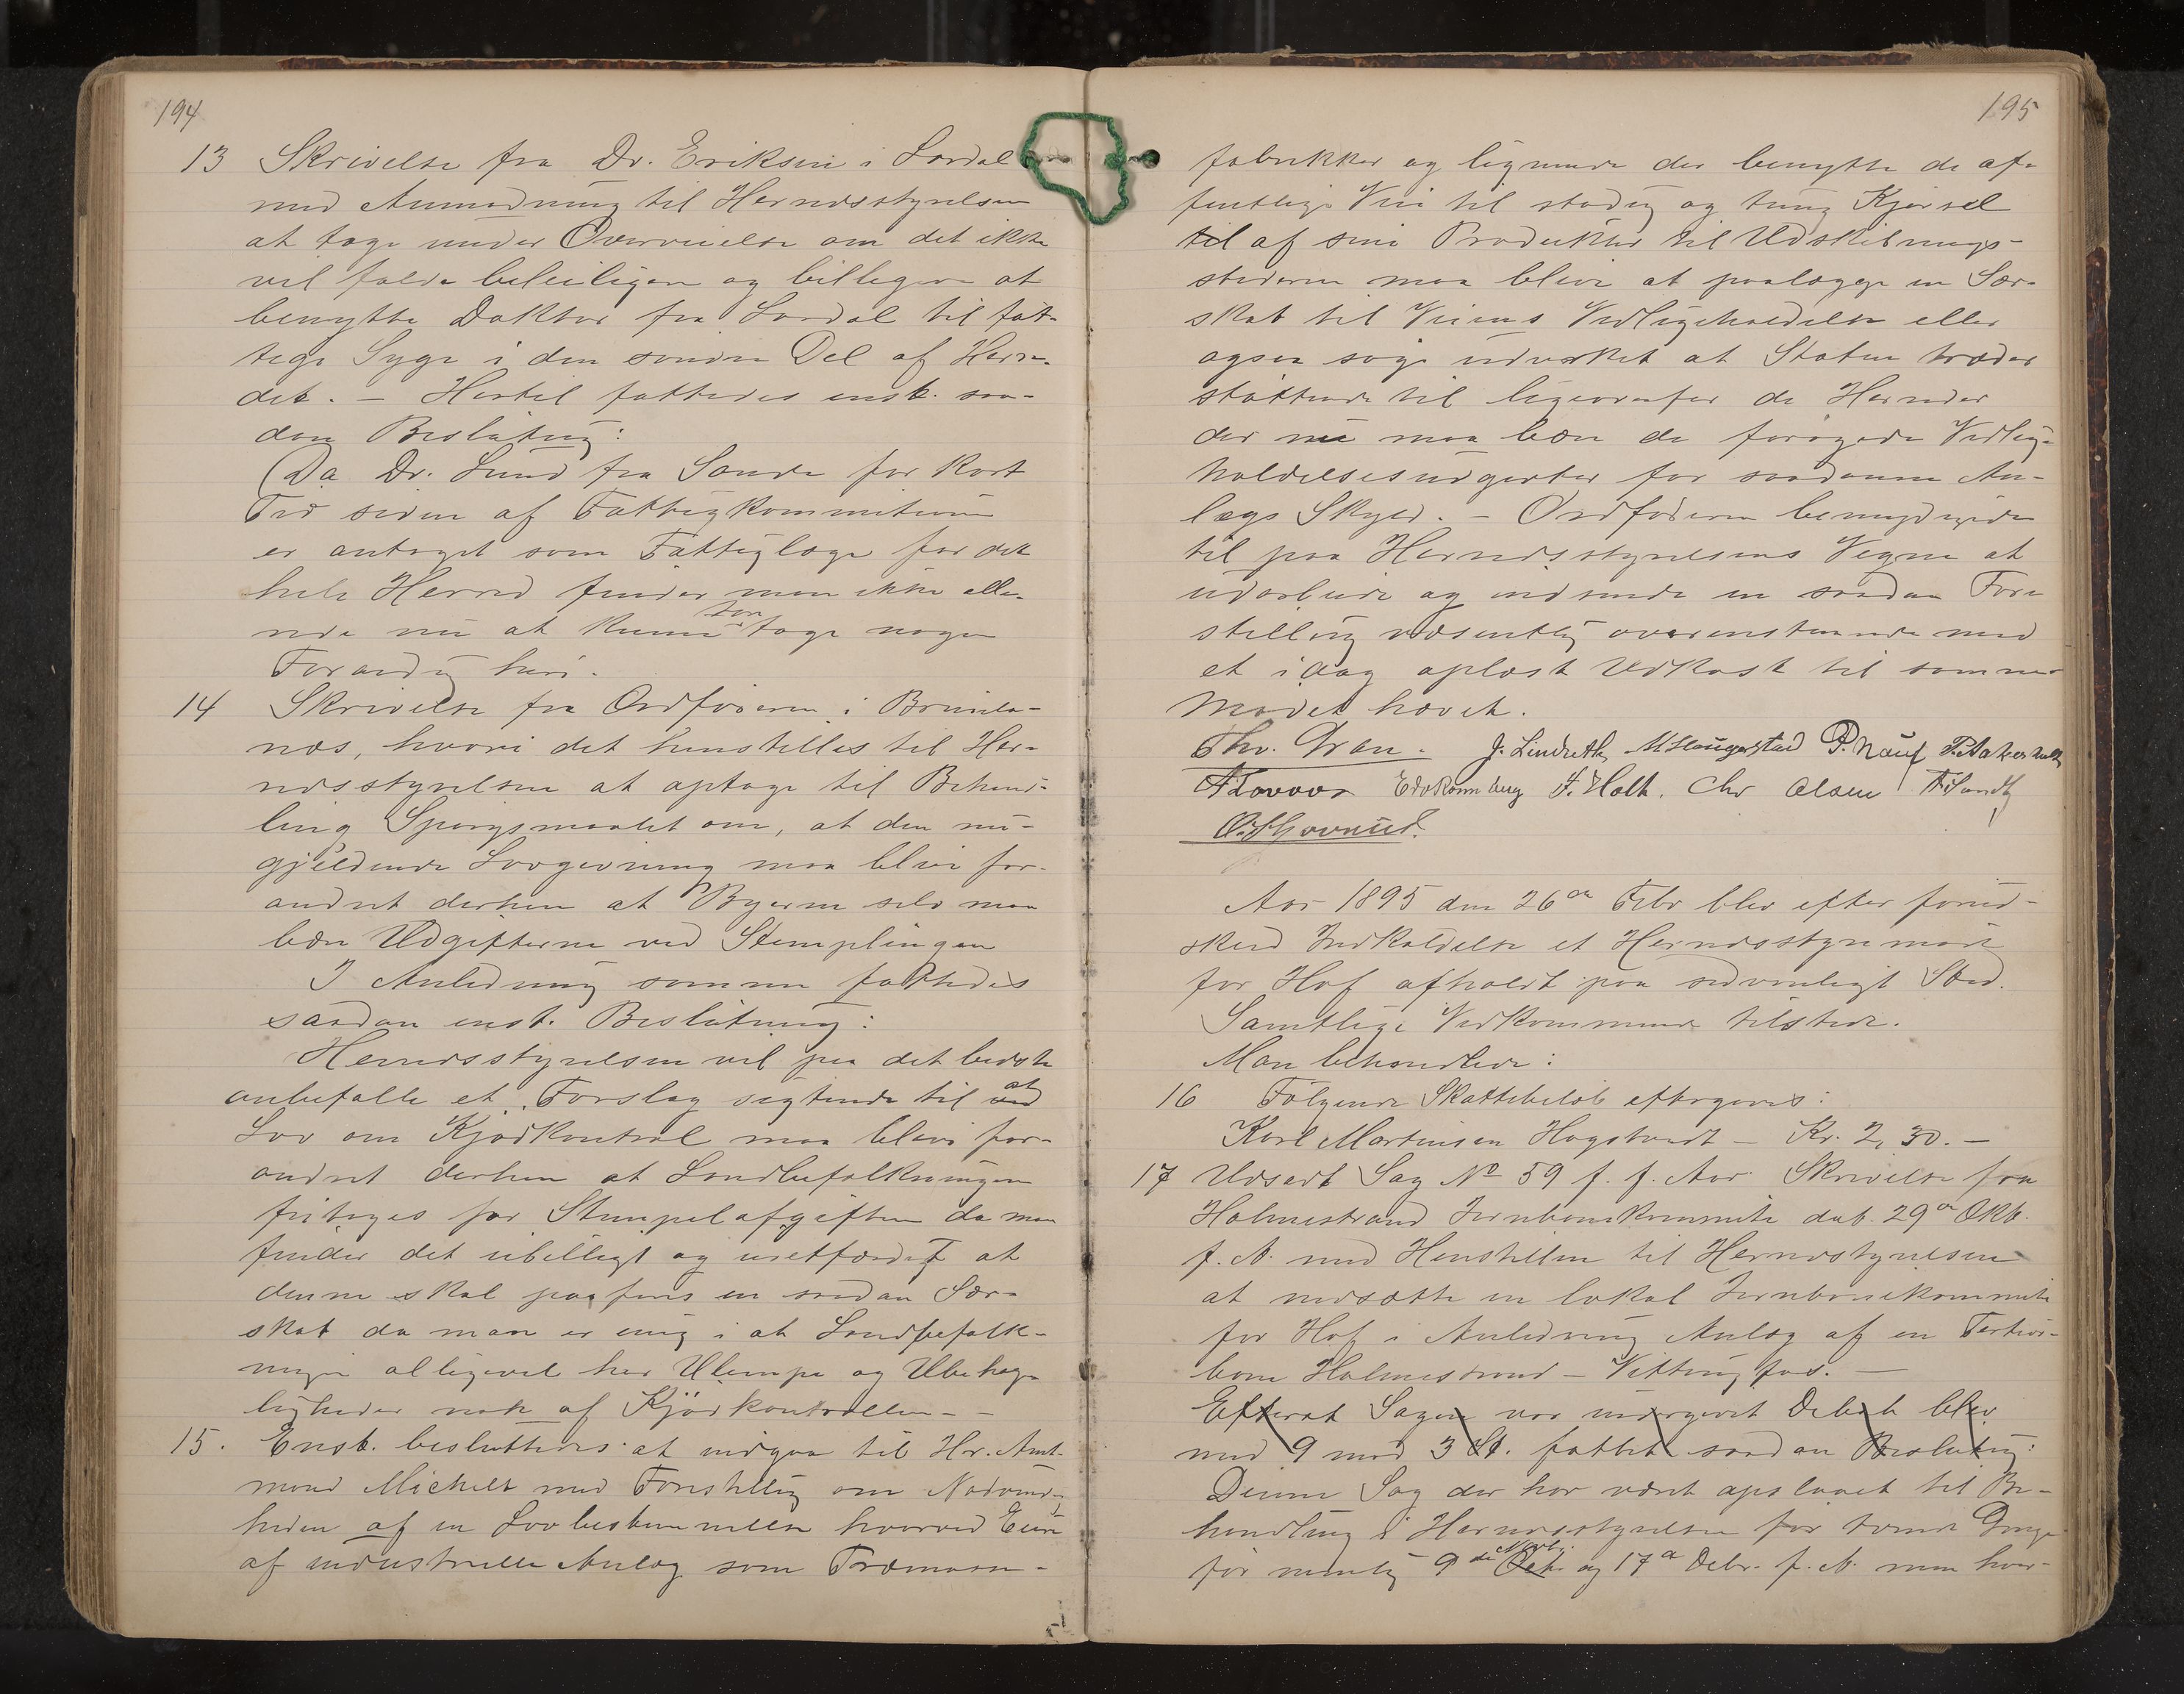 194
13 Skrivelse fra Dr. Eriksen i Lardal
med Anmodning til Herredsstyrelsen
at tage under Overveielse om det ikke
vil falde beleiligere og billigere at
benytte Doktor fra Lardal til fat-
tige Syge i den søndre Del af Herre-
det. – Hertil fattedes enst. saa-
dan Beslutning:
Da Dr. Lund fra Sande for kort
Tid siden af Fattigkommitionen
er antaget som Fattiglæge for det
hele Herred finder man ikke alle-
rede nu at kunne foretage nogen
Forandring heri.
14 Skrivelse fra Ordføreren i Brunla-
næs, hvori det henstilles til Her-
redsstyrelsen at optage til Behand-
ling Spørgsmaalet om, at den nu-
gjeldende Lovgivning maa blive for-
andret derhen at Byerne selv maa
bære Udgifterne ved Stemplingen
I Anledning samme fattedes
saadan enst. Beslutning:
Herredsstyrelsen vil paa det bedste
anbefalle et Forslag sigtende til at
Lov om Kjødkontrol maa blive for-
andret derhen at Landbefolkningen
fritages for Stempelafgiften da man
finder det ubilligt og uretfærdigt at
denne skal paaføres en saadan Sær-
skat da man er enig i at Landbefolk-
ningen alligevel har Ulempe og Ubehage-
ligheder nok af Kjødkontrollen –
15. Enst. besluttedes at indgaa til Hr. Amt-
mand Michelet med Forestilling om Nødvendig-
heden af en Lovbestemmelse hvorved Eiere
af industrielle Anlæg som Træmasse-
195
fabrikker og lignende der benytte de of-
fentlige Veie til stadig og tung Kjørsel
til af sine Produkter til Udskibnings-
stederne maa blive at paalægge en Sær-
skat til Veiens Vedligeholdelse eller
ogsaa søge udvirket at Staten træder
støttende til ligeoverfor de Herreder
der nu maa bære de forøgede Vedlige-
holdelsesudgifter for saadanne An-
lægs Skyld. – Ordføreren bemyndigedes
til paa Herredsstyrelsens Vegne at
udarbeide og indsende en saadan Fore-
stilling væsentlig overensstemmende med
et idag oplæst Udkast til samme
Mødet hævet.
Thv. Gran. J. Lindseth M Haugestad P. Nauf P. Aakerholt
A Lovaas Edv Kornberg F. Holt. Chr Olsen A Sandh
O. Skjovrud.
Aar 1895 den 26de Febr blev efter forud-
skeed Indkaldelse et Herredsstyremøde
for Hof afholdt paa sedvanligt Sted.
Samtlige Vedkommende tilstede.
Man behandlede:
16 Følgende Skattebeløb eftergives:
Karl Martinsen Hagstvedt – Kr. 2,30. –
17 Udsadt Sag No 59 f. f. Aar Skrivelse fra
Holmestrand Jernbanekommite dat. 29de Okt.
f. A. med Henstillen til Herredsstyrelsen
at nedsætte en lokal Jernbanekommite
for Hof i Anledning Anlæg af en Tertiær-
bane Holmestrand – Vittingfos. –
Efterat Sagen var undergivet Debat blev
med 9 mod 3 St. fattet saadan Beslutning:
Denne Sag der har været opslaaet til Be-
handling i Herredsstyrelsen for tvende Gange
før nemlig 9de Novbr. Okt. og 17de Debr. f. A. men hver-